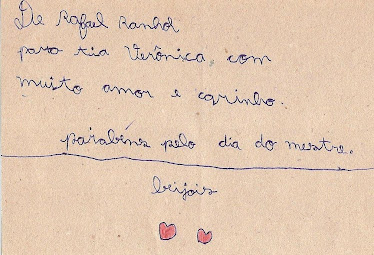 De Rafael Ranhol
para tia Verônica com
muito amor e carinho.
parabéns pelo dia do mestre.
beijois